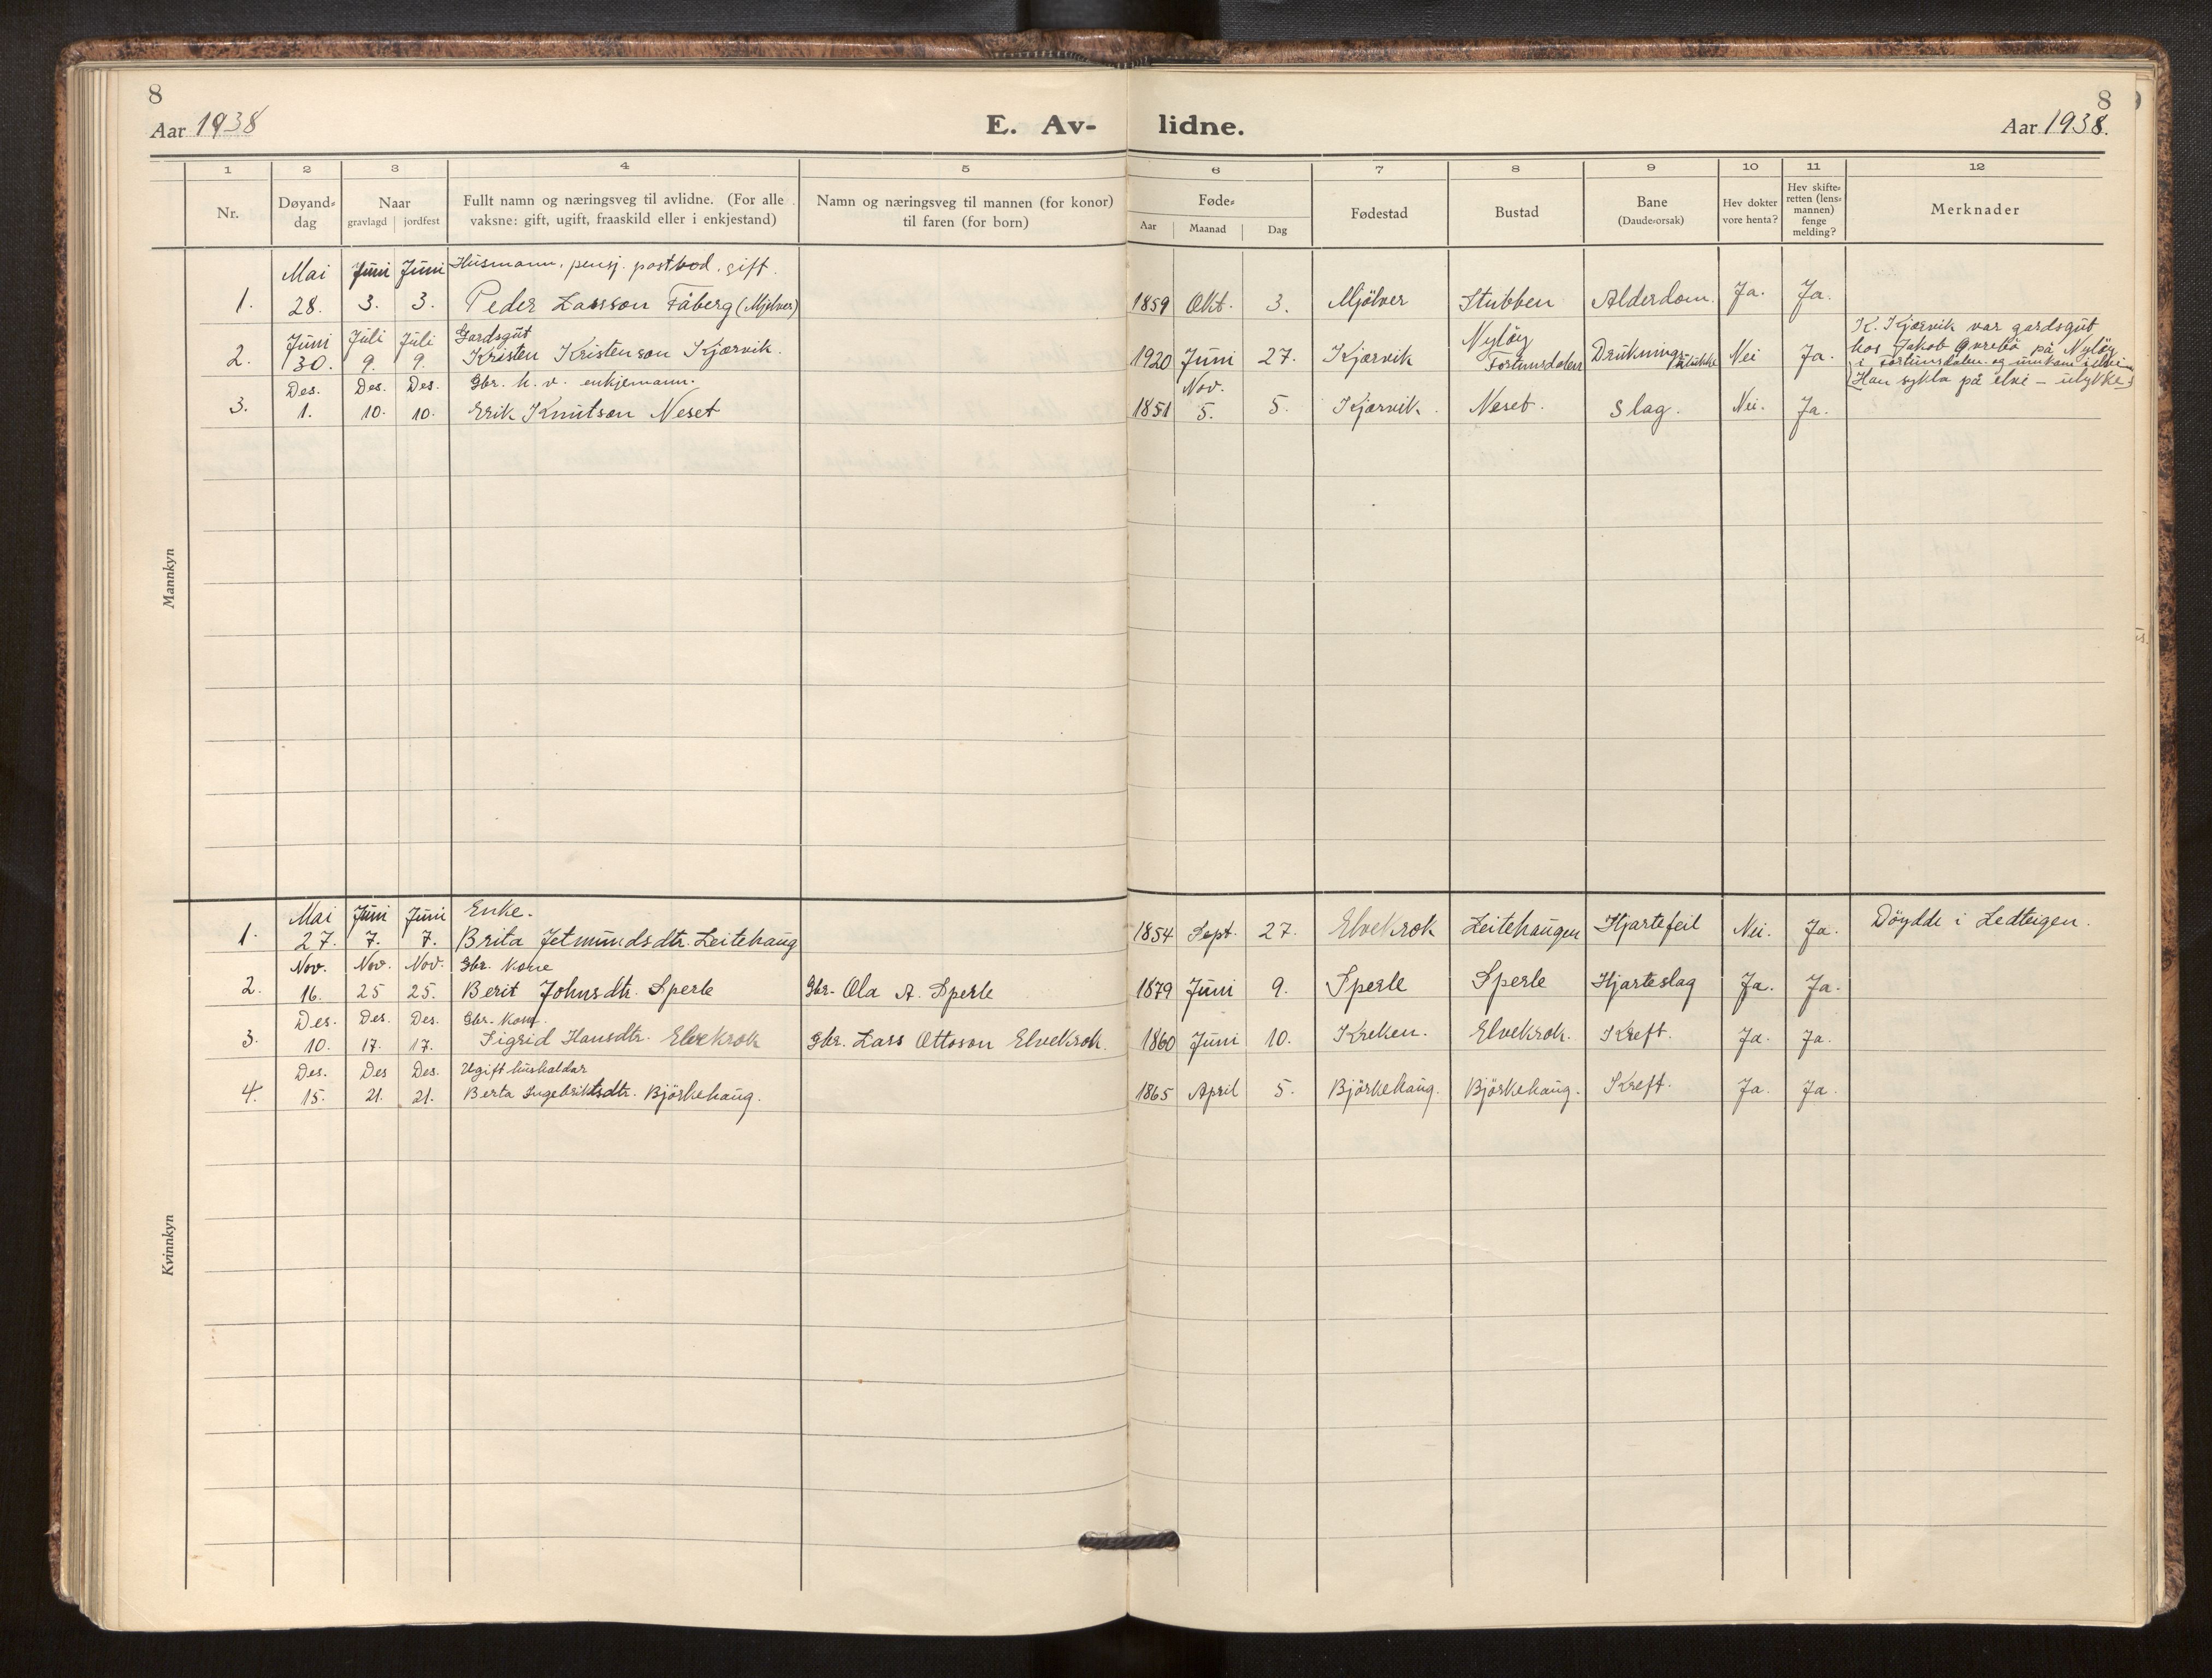 8
Aar 1938
E. Av-
lidne.
8
Aar 1938.
1
2
3
4
5
6
7
8
9
10
11
12
Nr.
Døyand-
dag
Naar
gravlagd
jordfest
Fullt namn og næringsveg til avlidne. (For alle
vaksne: gift, ugift, fraaskild eller i enkjestand)
Namn og næringsveg til mannen (for konor)
til faren (for born)
Føde-
Aar
Maanad
Dag
Fødestad
Bustad
Bane
(Daude-orsak)
Hev dokter
vore henta?
Hev skifte-
retten (lens-
mannen)
fenge
melding?
Merknader
Mannkyn
Mai Juni Juni Husmann, pensj. postbod, gift.
1. 28. 3. 3. Peder Larsson Fåberg (Mjølver) 1859 Okt. 3. Mjölver Stubben Alderdom. Ja. Ja.
Juni Juli Juli Gardsgut Nylöy K. Kjærvik var gardsgut
2. 30. 9. 9. Kristen Kristenson Kjærvik. 1920 Juni 27. Kjærvik Fortunsdalen Druknings- Nei Ja. hos Jakob på Nylöy
ulukke i Fortunsdalen og umkom i elvi
Des. Des. Des. Gbr. k. v. enkjemann. Nov. (Han sykla på elvi – ulykke)
3. 1. 10. 10. Erik Knutson Neset 1851 5. 5. Kjærvik. Neset. Slag. Nei. Ja.
Kvinnkyn
Mai Juni Juni Enke.
1. 27. 7. 7. Brita Jetmundsdtr. Leitehaug 1854 Sept. 27. Elvekrok Leitehaugen Hjartefeil Nei. Ja. Döydde i Ledteigen.
Nov. Nov. Nov. Gbr. kone
2. 16. 25 25. Berit Johnsdtr. Sperle Gbr. Ola A. Sperle 1879 Juni 9. Sperle Sperle Hjarteslag Ja. Ja.
Des. Des. Des. Gbr. kone.
3. 10. 17. 17. Sigrid Hansdtr. Elvekrok Gbr. Lars Ottoson Elvekrok. 1860 Juni 10. Kreken. Elvekrok. Kreft. Ja. Ja.
Des. Des Des. Ugift hushaldar
4. 15. 21. 21. Berta Ingebriktsdtr. Björkehaug. 1865 April 5. Björkehaug. Björkehaug. Kreft. Ja. Ja.